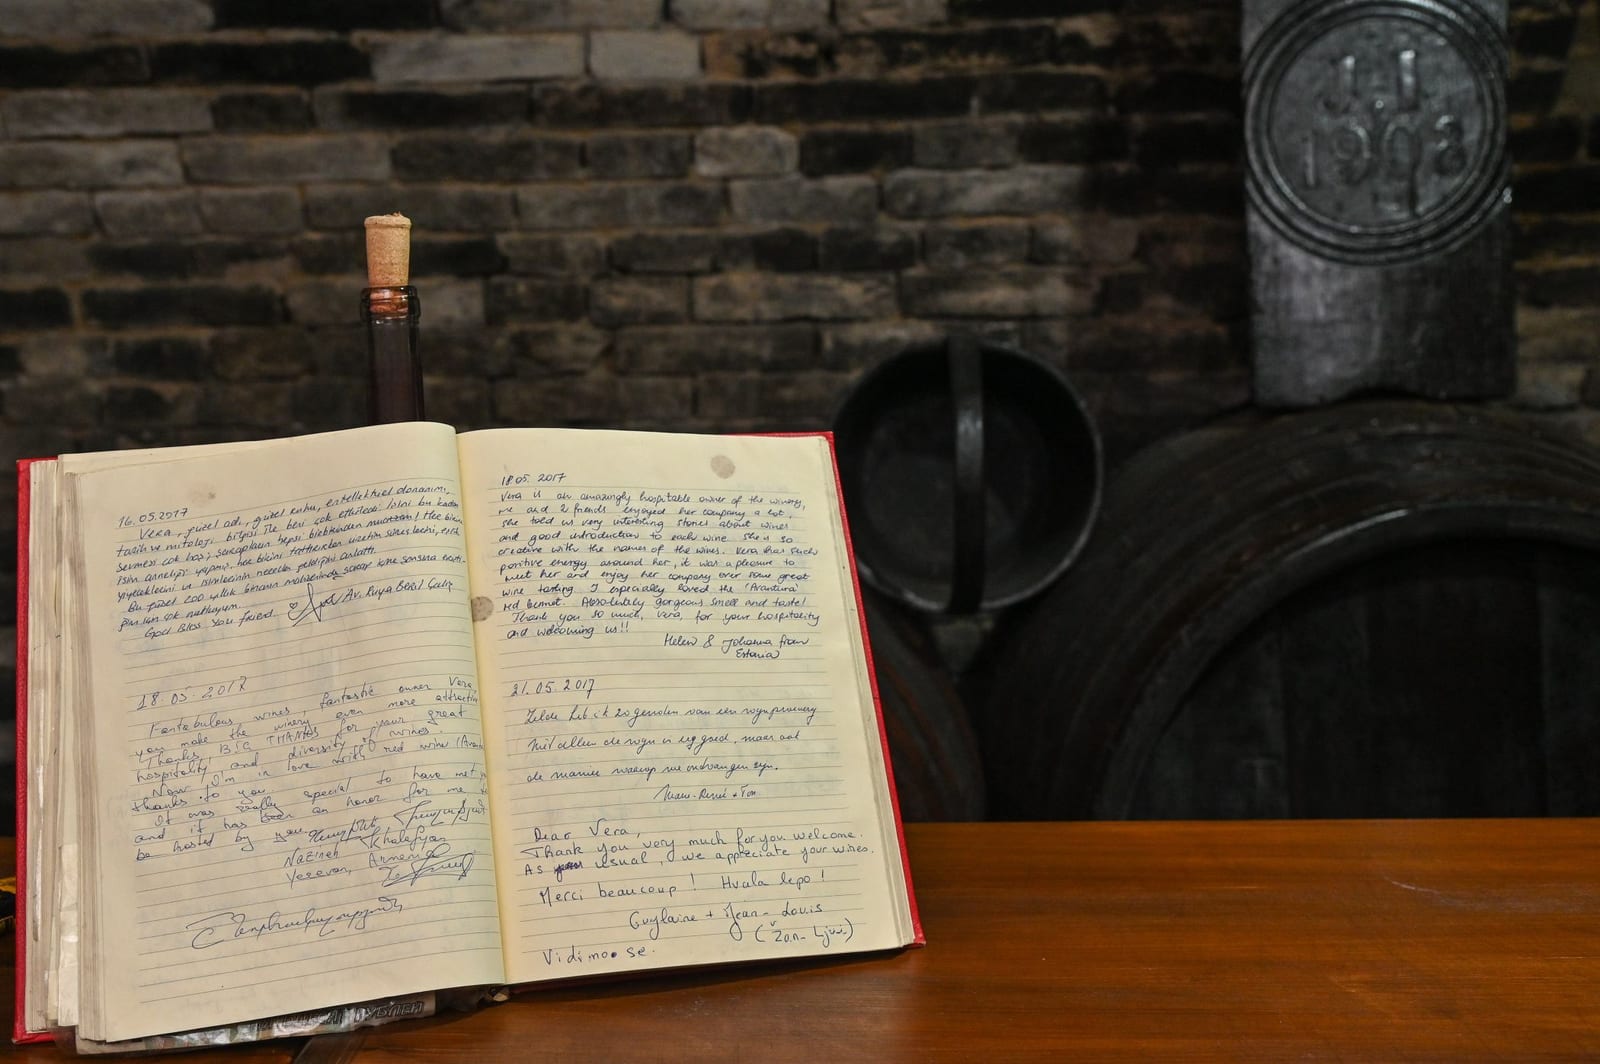 16.05.2017
VERA, güzel adı, güzel ruhu, entellektüel donanımı,
tarih ve mitoloji bilgisi ile beni çok etkiledi. İşini bu kadar
sevmesi çok hoş; şarapların hepsi birbirinden
isim anneliği yapmış, hee birini tattırırken üretim süreçlerini, eşlik
yiyeceklerini ve isimlerinin nereden geldiğini anlattı.
Bu güzel 200 yıllık binanın mahzeninde şarap içme şansına
için çok mutluyum.
God Bless You friend. Av. Rüya Beril Çelik
18.05.2017
Fantabulous wines, fantastic owner Vera
you make the winery even more
Thanks, BIG THANKS for your great
hospitality and diversity of wines.
Now I'm in love with red wine
thanks to you.
It was really special to have met
and it has been an honor for me to
be hosted by you
Nazineh Khalafyan
Yerevan, Armenia
18.05.2017
Vera is an amazingly hospitable owner of the winery,
me and 2 friends enjoyed her company a lot,
she told us very interesting stories about wines
and good introduction to each wine. She is so
creative with the names of the wines. Vera has such
positive energy around her, it was a pleasure to
meet her and enjoy her company over some great
wine tasting. I especially loved the 'Avantura'
red bermet. Absolutely gorgeous smell and taste!
Thank you so much, Vera, for your hospitality
and welcoming us!!
Helen & Johanna from
Estonia
21.05.2017
Zelden heb ik zo genoten van een wijnproeverij
Niet alleen de wijn is erg goed, maar ook
de manier waarop we ontvangen zijn.
Marie-René + Ton
Dear Vera,
Thank you very much for you welcome.
As usual, we appreciate your wines.
Merci beaucoup! Hvala lepo!
Guylaine + Jean-Louis
(Žan-Luj)
Vidimo se.
J I
1998